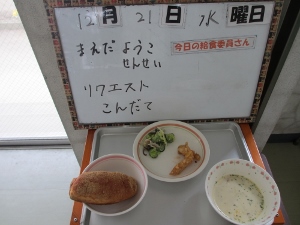 12月21日水曜日
今日の給食委員さん
まえだ ようこ
せんせい
リクエスト
こんだて